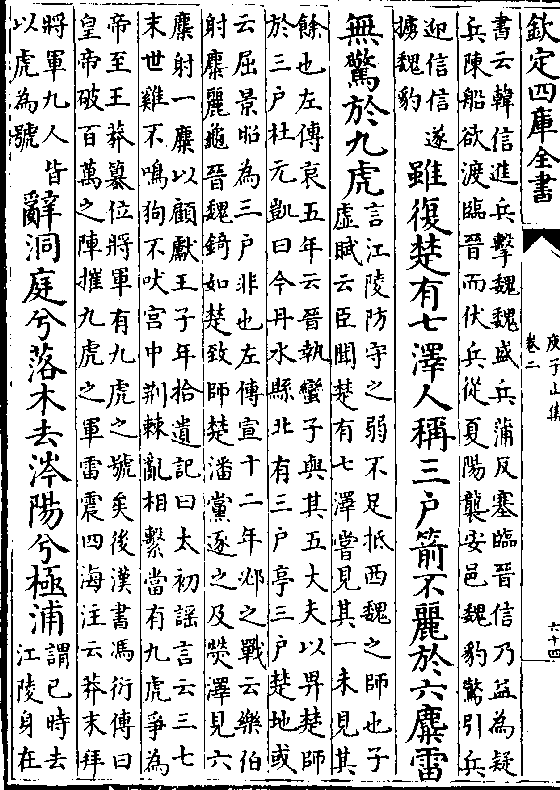 欽定四庫全書
庾子山集
卷二
六十四
書云韓信進兵擊魏魏盛兵蒲反塞臨晉信乃益為疑
兵陳船欲渡臨晉而伏兵從夏陽襲安邑魏豹驚引兵
迎信信遂
擄魏豹
雖復楚有七澤人稱三户箭不麗於六麋雷
無驚於九虎
言江陵防守之弱不足抵西魏之師也子
虛賦云臣聞楚有七澤嘗見其一未見其
餘也左傳哀五年云晉執蠻子與其五大夫以畀楚師
於三户杜元凱曰今丹水縣北有三户亭三户楚地或
云屈景昭為三户非也左傳宣十二年邲之戰云樂伯
射麋麗龜晉魏錡如楚致師楚潘黨逐之及熒澤見六
麋射一麋以顧獻王子年拾遺記曰太初謡言云三七
末世雞不鳴狗不吠宫中荆棘亂相繫當有九虎爭為
帝至王莽簒位將軍有九虎之號矣後漢書馮衍傳曰
皇帝破百萬之陣摧九虎之軍雷震四海注云莽末拜
將軍九人皆
以虎為號
辭洞庭兮落木去涔陽兮極浦
謂已時去
江陵身在